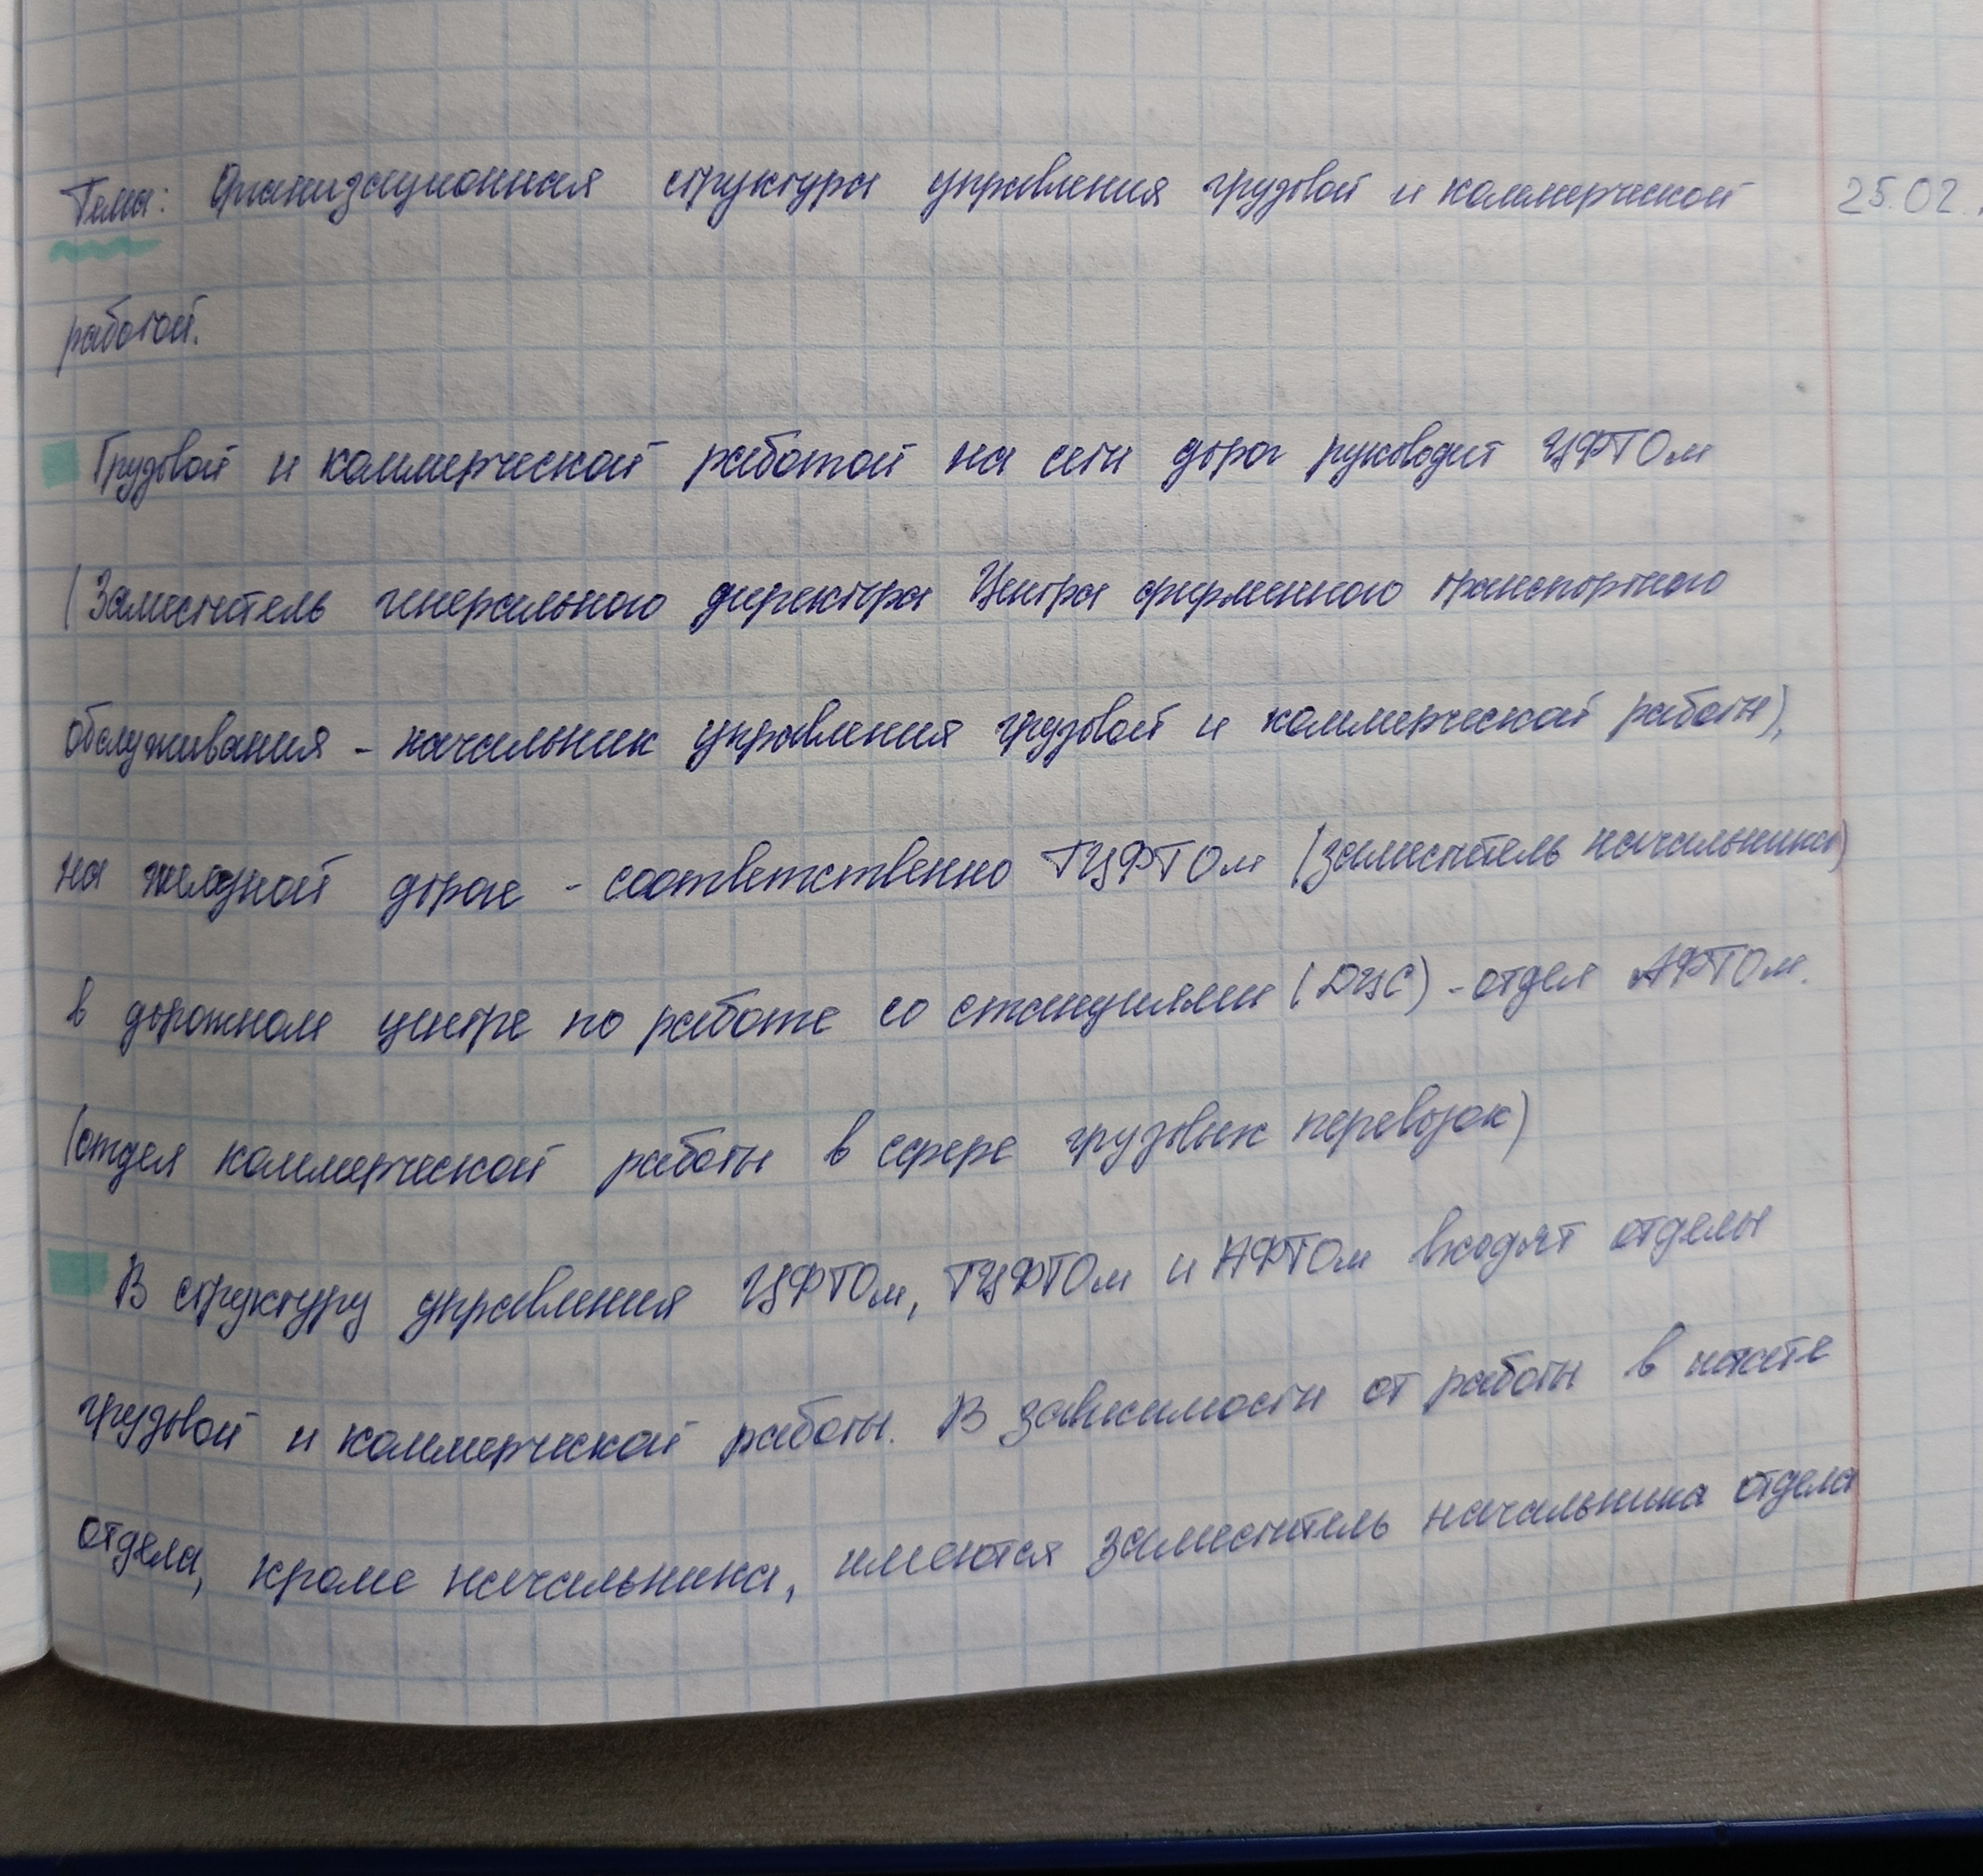 Тема: Организационная структура управления грузовой и коммерческой 25.02.
работой.
Грузовой и коммерческой работой на сети дорог руководит ЦФТОм
(Заместитель генерального директора Центра фирменного транспортного
обслуживания - начальник управления грузовой и коммерческой работы),
на железной дороге - соответственно ТЦФТОм (заместитель начальника)
в дорожном центре по работе со станциями (ДЦС) - отдел АФТОм.
(отдел коммерческой работы в сфере грузовых перевозок)
В структуру управления ЦФТОм, ТЦФТОм и АФТОм входят отделы
грузовой и коммерческой работы. В зависимости от работы в штате
отдела, кроме начальника, имеются заместитель начальника отдела